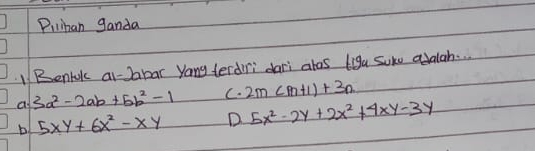 Pilihan ganda
1. Bentuk al-Jabar yang terdiri dari atas tiga suku adalah...
a. 3a² - 2ab + 5b² - 1 C. 2m (m+1) + 3n
b. 5xy + 6x² - xy D. 5x² - 2y + 2x² + 4xy - 3y